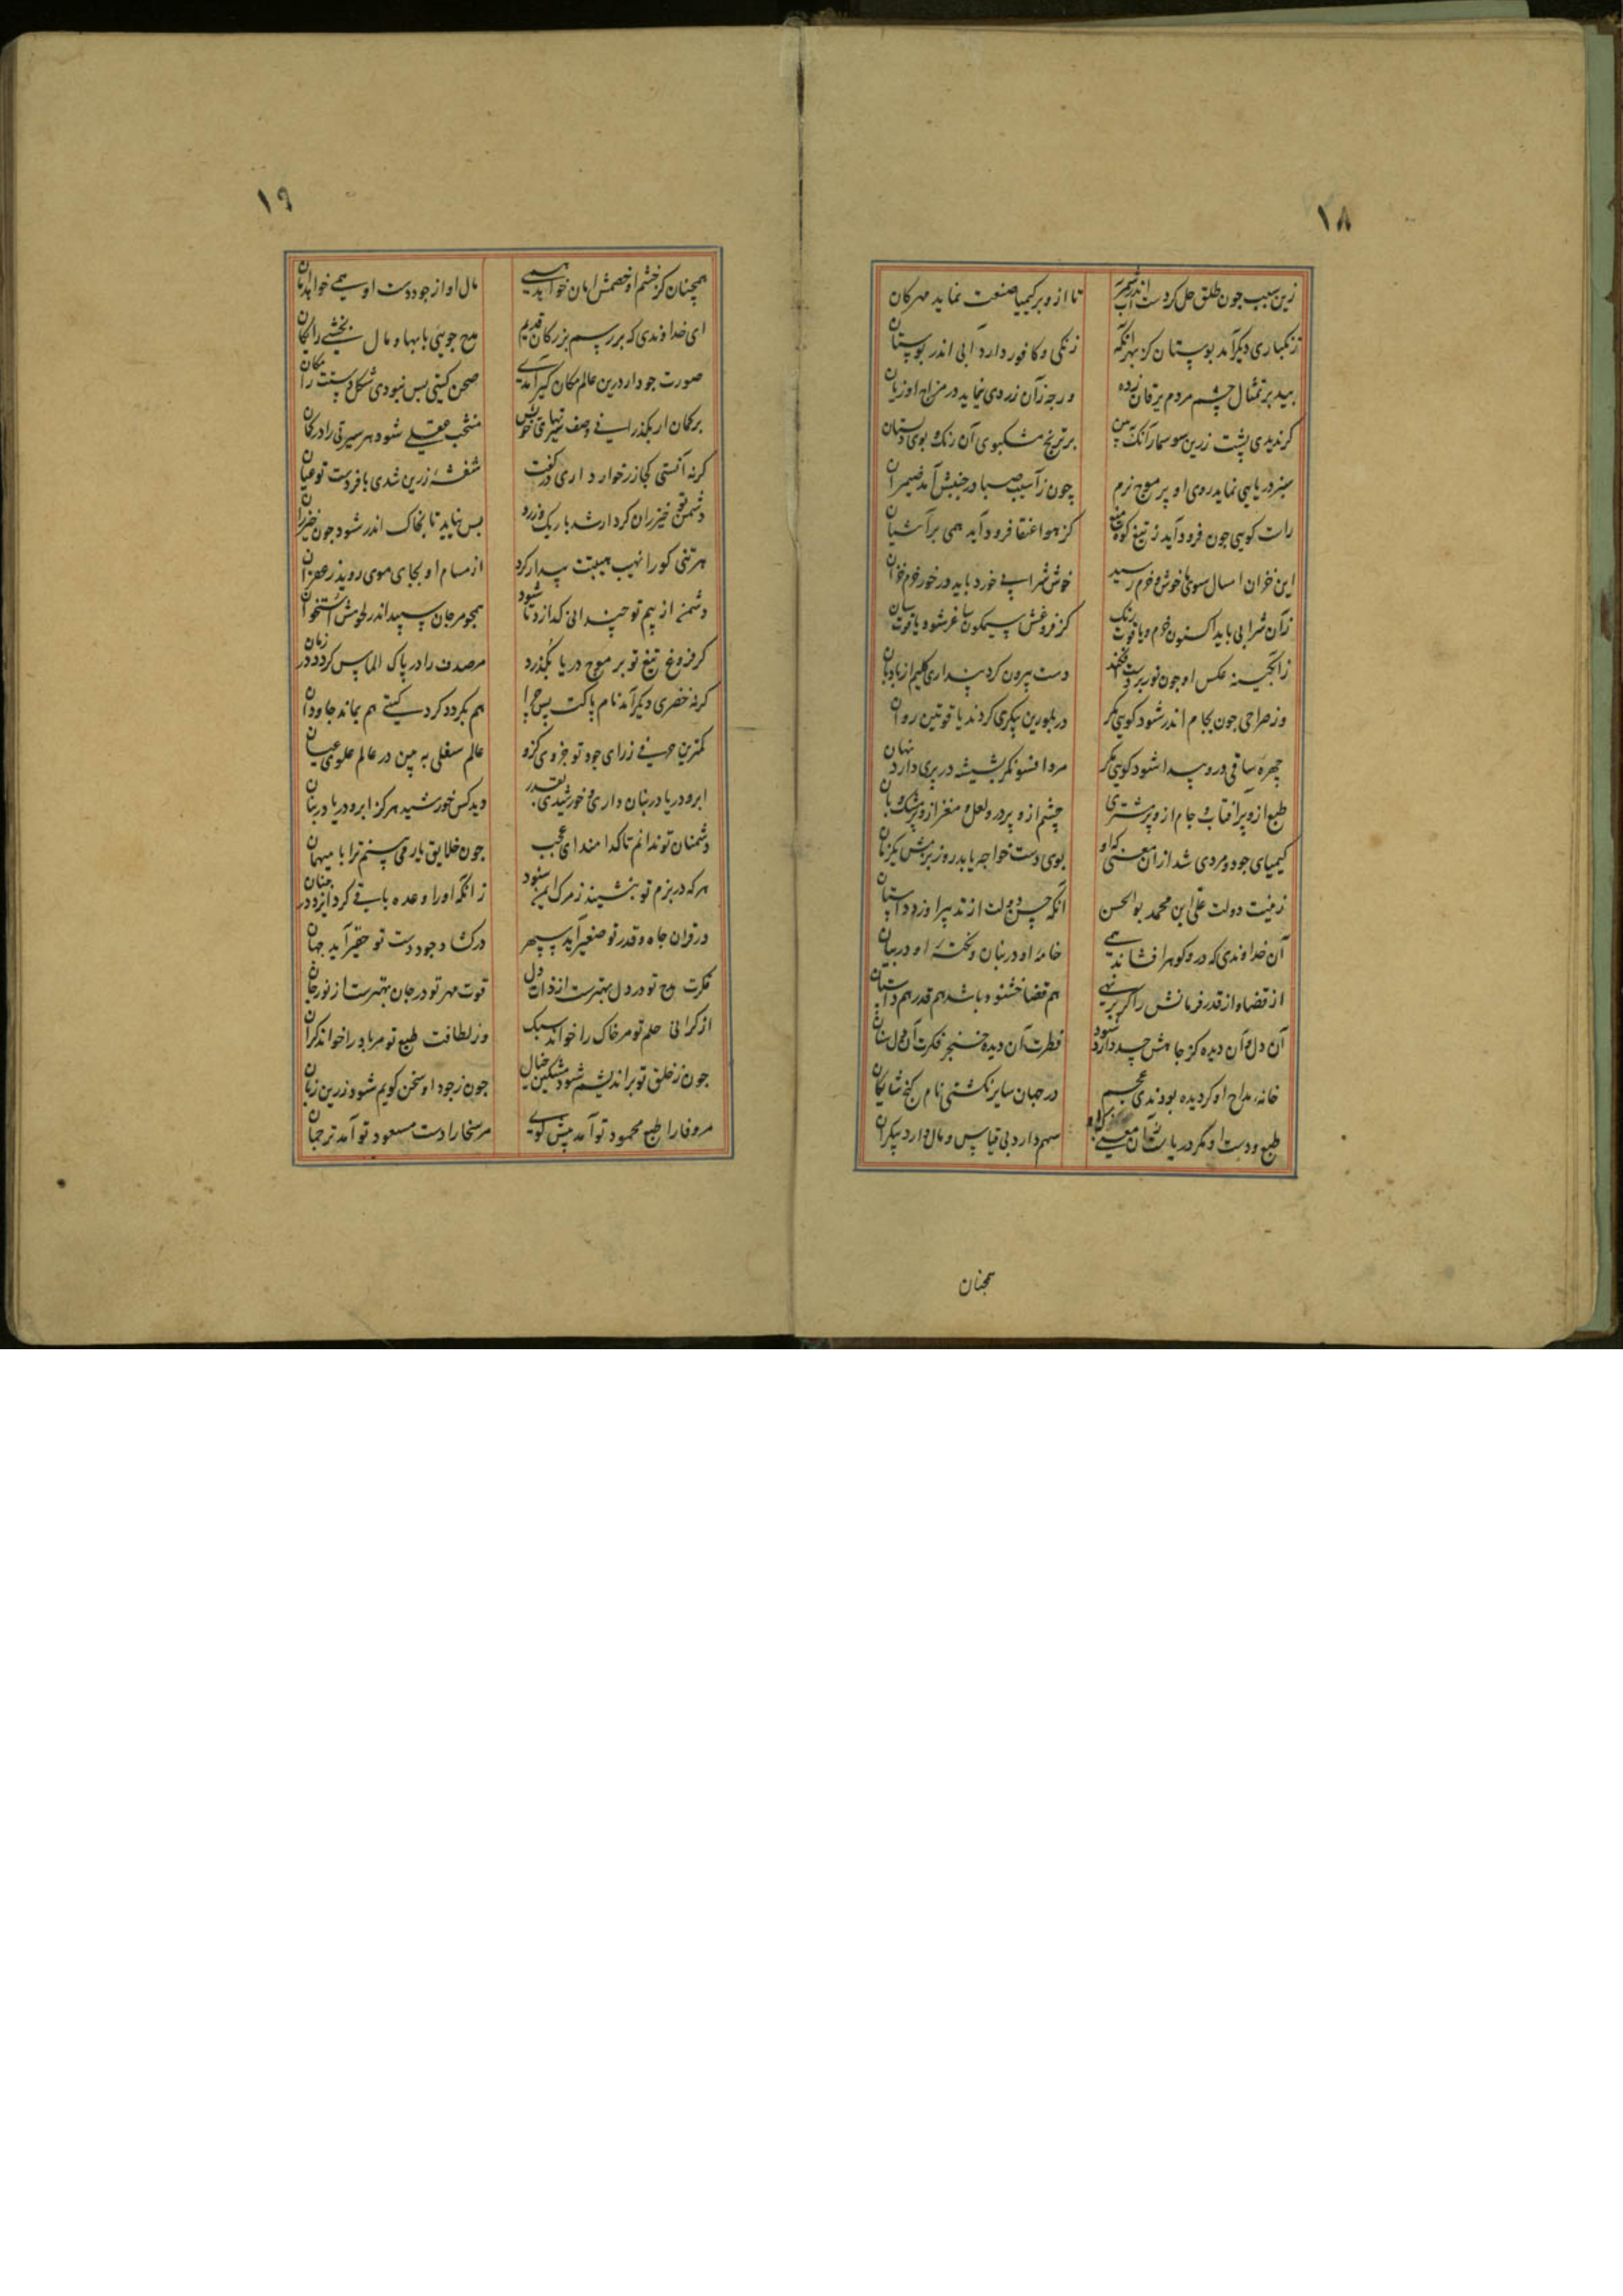 ۱۸
زین سبب چون طلق حل کردست اندر شمر آب
تا ازو بر کیمیا صنعت نماید مهرکان
زنکباری دیکر آمد بوستان کز بهر آنکه
زنکی و کافور دارد آبی اندر بوستان
بید بر تمثال چشم مردم یرقان زده
ورجه زآن زردی نماید در مزاج او زیان
کر ندیدی پشت زرین سوسمار آنک ببین
بر ترنج مشکبوی آن رنک و بوی دلستان
سبز دریایی نماید روی او پر موج نرم
چون ز آسیب صبا در جنبش آمد ضیمران
راست کویی جون فرود آید ز تیغ کوه
کز هوا عنقا فرود آید همی بر آشیان
این خزان امسال سوی ما خوش و خرم رسید
خوش شرابی خورد باید در خور خرم خزان
زآن شرابی باید اکنون خرم و یاقوت رنک
کز فروغش سیمکون ساغر شود یاقوت سان
زآبکینه عکس او جون نور بر دست افکند
دست بیرون کرد پنداری کلیم از بادبان
وز صراحی جون بجام اندر شود کویی مکر
در بلورین پیکری کردند یاقوتین روان
چهره ساقی درو پیدا شود کویی مکر
مرد افسونکر بشیشه در پری دارد نهان
طبع ازو پر آفتاب و جام ازو پر مشتری
چشم ازو پر در و لعل و مغز ازو پر مشک و بان
کیمیای جود و مردی شد از آن معنی که او
بوی دست خواجه یابد روز بزمش یکزمان
زینت دولت علی ابن محمد بوالحسن
آنکه حسن دولت از تدبیر او زد داستان
آن خداوندی که در و کوهر افشاند همی
خامهٔ او در بنان و نکتهٔ او در بیان
از قضا و از قدر فرمانش را کر بر نهی
هم قضا خشنود باشد هم قدر همداستان
آن دل و آن دیده کز جاهش حسد دارد شود
فطرت آن دیده خنجر فکرت آن دل سنان
خانه مداح او کر دیده بودندی عجم
در جهان سایر نکشتی نام کنج شایکان
طبع و دست او مکر دریاست زآن معنی که او
سهم دارد بی قیاس و مال دارد بیکران
همچنان
۱۹
همچنان کز خشم او خصمش امان خواهد همی
مال او از جود دست او همی خواهد امان
ای خداوندی که بر رسم بزرکان قدیم
مدح جویی با بها و مال بخشی رایکان
صورت جود ار درین عالم مکان کیر آمدی
صحن کیتی بس نبودی شکل دستت را مکان
بر کمان ار بکذرانی وصف تیرهای خویش
منتخب عقلی شود هر سیرتی را در کمان
کر نه آنستی کجا زر خوار داری در کفت
شفشهٔ زرین شدی با فر دست تو عیان
دشمن تو خیزران کردار شد باریک و زرد
بس نپاید تا بخاک اندر شود جون خیزران
هر تنی کو را نهیب هیبتت بیدار کرد
از مسام او بجای موی روید زعفران
دشمن از بیم تو چندانی کدازد تا شود
همجو مرجان سپید اندر لحومش استخوان
کر فروغ تیغ تو بر موج دریا بکذرد
مر صدف را در پاک الماس کردد در زمان
کر نه خضری دیکر آمد نام پاکت پس چرا
هم بکردد کرد کیتی هم بماند جاودان
کمترین حرفی ز رای جود تو جزوی کزو
عالم سفلی ببین در عالم علوی عیان
ابر و دریا در بنان داری و خورشیدی بقدر
دید کس خورشید هرکز ابر و دریا در بنان
دشمنان تو ندانم تا کدامند ای عجب
جون خلایق یار می بینم ترا با میهمان
هر که در بزم تو بنشیند ز مرک ایمن شود
زانکه او را وعده باقی کرد ایزد در جنان
در توان جاه و قدر تو صغیر آید سپهر
در کشاد جود دست تو حقیر آید جهان
فکرت مدح تو در دل بهترست از ذات دل
قوت مهر تو در جان بهترست از نور جان
از کرانی حلم تو مر خاک را خواند سبک
وز لطافت طبع تو مر باد را خواند کران
جون ز خلق تو براندیشم شود مشکین خیال
جون ز جود او سخن کویم شود زرین زبان
مر وفا را طبع محمود تو آمد پیش کوی
مر سخا را دست مسعود تو آمد ترجمان